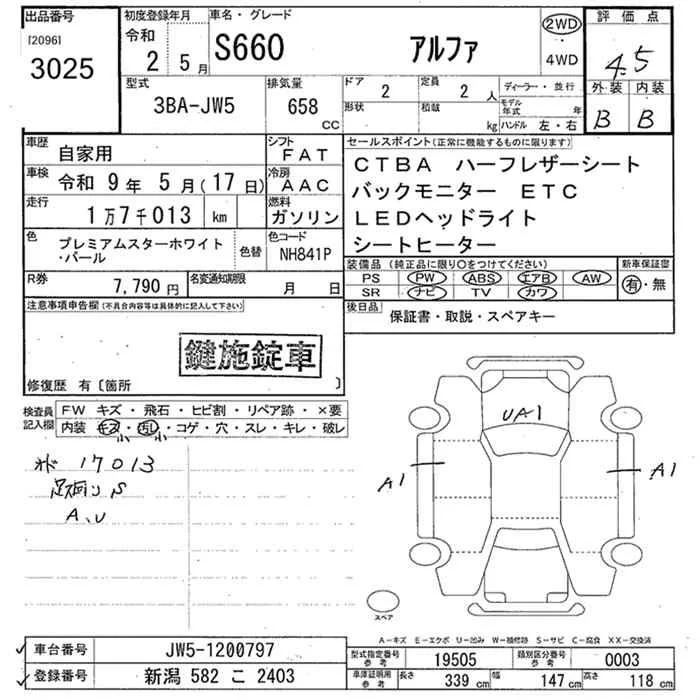 出品番号
[2096]
3025
初度登録年月
令和
2 5月
車名・グレード
S660 アルファ
2WD
4WD
評価点
4.5
外装 内装
B B
型式
3BA-JW5
排気量
658
CC
ドア
2
定員
2 人
形状
積載
kg
ディーラー・並行
モデル年式 年
ハンドル 左・右
車歴
自家用
シフト
FAT
車検
令和 9年 5月(17日)
冷房
AAC
走行
1万7千013 km
燃料
ガソリン
色
プレミアムスターホワイト
・パール
色替
色コード
NH841P
R券
7,790 円
名変通知期限
月 日
セールスポイント(正常に機能するものに限ります)
CTBA ハーフレザーシート
バックモニター ETC
LEDヘッドライト
シートヒーター
装備品(純正品に限り○をつけてください)
PS PW ABS エアB AW
SR ナビ TV カワ
新車保証書
有・無
後日品
保証書・取説・スペアキー
注意事項申告欄(不具合内容等は具体的に記入して下さい)
鍵施錠車
修復歴 有〔箇所 〕
検査員
記入欄
FW キズ・飛石・ヒビ割・リペア跡・×要
内装 キズ・汚れ・コゲ・穴・スレ・キレ・破レ
小 小
オド 17013
足廻り S
A、U
UA1
A1
A1
スペア
A-キズ E-エクボ U-凹み W-補修跡 S-サビ C-腐食 XX-交換済
車台番号
JW5-1200797
登録番号
新潟 582 こ 2403
型式指定番号
参考
19505
類別区分番号
参考
0003
車庫証明用
参考
長さ
339 cm
幅
147 cm
高さ
118 cm